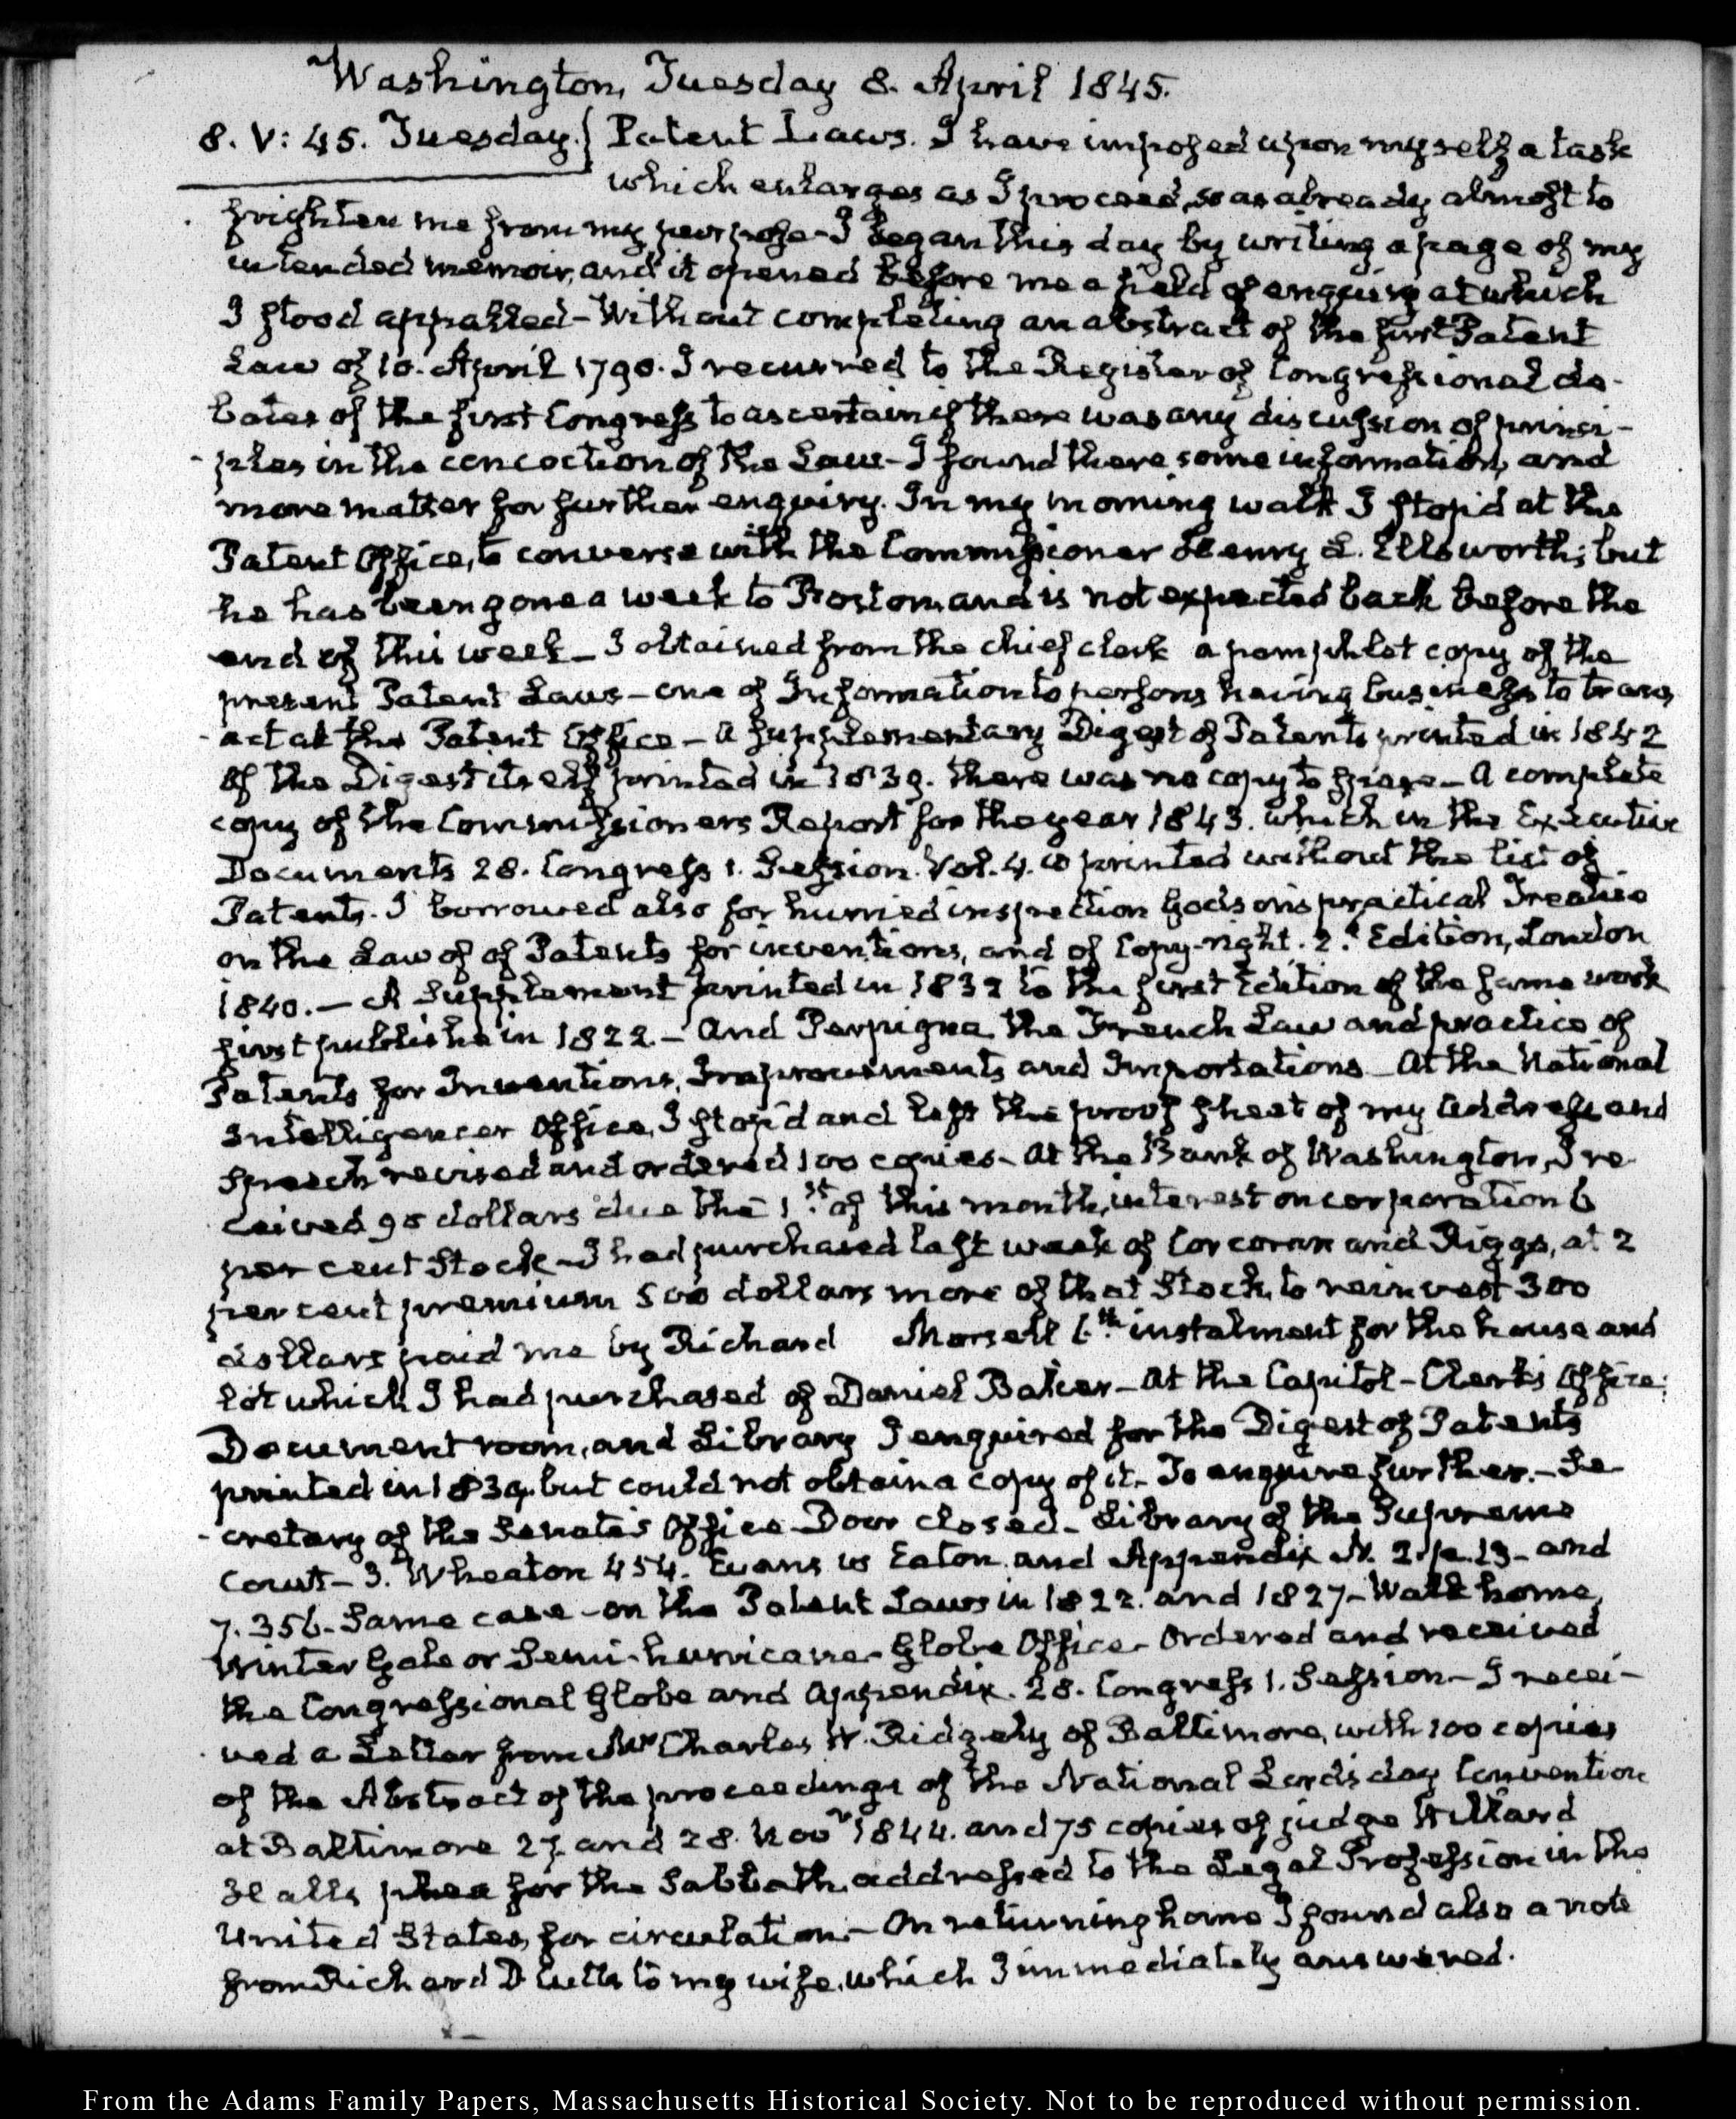 Washington, Tuesday 8. April 1845.
8. V: 45. Tuesday.} Patent Laws. I have imposed upon myself a task
which enlarges as I proceed, so as already almost to
frighten me from my purpose - I began this day by writing a page of my
intended memoir, and it opened before me a field of enquiry at which
I stood appalled - Without completing an abstract of the first Patent
Law of 10. April 1790. I recurred to the Register of Congressional de-
bates of the first Congress to ascertain if there was any discussion of princi-
-ples in the concoction of the Law - I found there some information, and
more matter for further enquiry. In my morning walk I stop'd at the
Patent Office, to converse with the Commissioner Henry L. Ellsworth; but
he has been gone a week to Boston, and is not expected back before the
end of this week - I obtained from the chief clerk a pamphlet copy of the
present Patent Laws - one of Information to persons having business to trans
-act at the Patent Office - a supplementary Digest of Patents printed in 1842
of the Digest itself printed in 1839. there was no copy to spare - A complete
copy of the Commissioners Report for the year 1843. which in the Executive
Documents 28. Congress 1. Session. Vol. 4. is printed without the list of
Patents. I borrowed also for hurried inspection Godson's practical Treatise
on the Law of of Patents for inventions, and of Copy-right. 2.d Edition, London
1840. - A Supplement printed in 1832 to the first Edition of the same work
first publishe in 1822. - And Perpigna the French Law and practice of
Patents for Inventions, Improvements and Importations - At the National
Intelligencer Office, I stop'd and left the proof sheet of my address and
speech revised and ordered 100 copies - At the Bank of Washington, I re
ceived 90 dollars due the 1.st of this month, interest on corporation 6
per cent Stock - I had purchased last week of Corcoran and Riggs, at 2
per cent premium 500 dollars more of that Stock, to reinvest 300
dollars paid me by Richard Morsell 6.th instalment for the house and
lot which I had purchased of Daniel Baker - At the Capitol - Clerk's Office;
Document room, and Library I enquired for the Digest of Patents
printed in 1839. but could not obtain a copy of it. To enquire further. - Se
-cretary of the Senate's Office Door closed - Library of the Supreme
Court - 3. Wheaton 454. Evans vs Eaton. and Appendix N. 2. p. 13 - and
7. 356. Same case - on the Patent Laws in 1822. and 1827 - Walk home,
Winter Gale or Semi-hurricane - Globe Office - Ordered and received
the Congressional Globe and Appendix. 28. Congress 1. Session - I recei-
ved a Letter from Mr Charles W. Ridgely of Baltimore, with 100 copies
of the Abstract of the proceedings of the National Lord's day Convention
at Baltimore 27 and 28. Nov.r 1844. and 75 copies of judge Willard
Hall's plea for the Sabbath, addressed to the Legal Profession in the
United States, for circulation. - On returning home I found also a note
from Richard D Cutts to my wife, which I immediately answered.
From the Adams Family Papers, Massachusetts Historical Society. Not to be reproduced without permission.